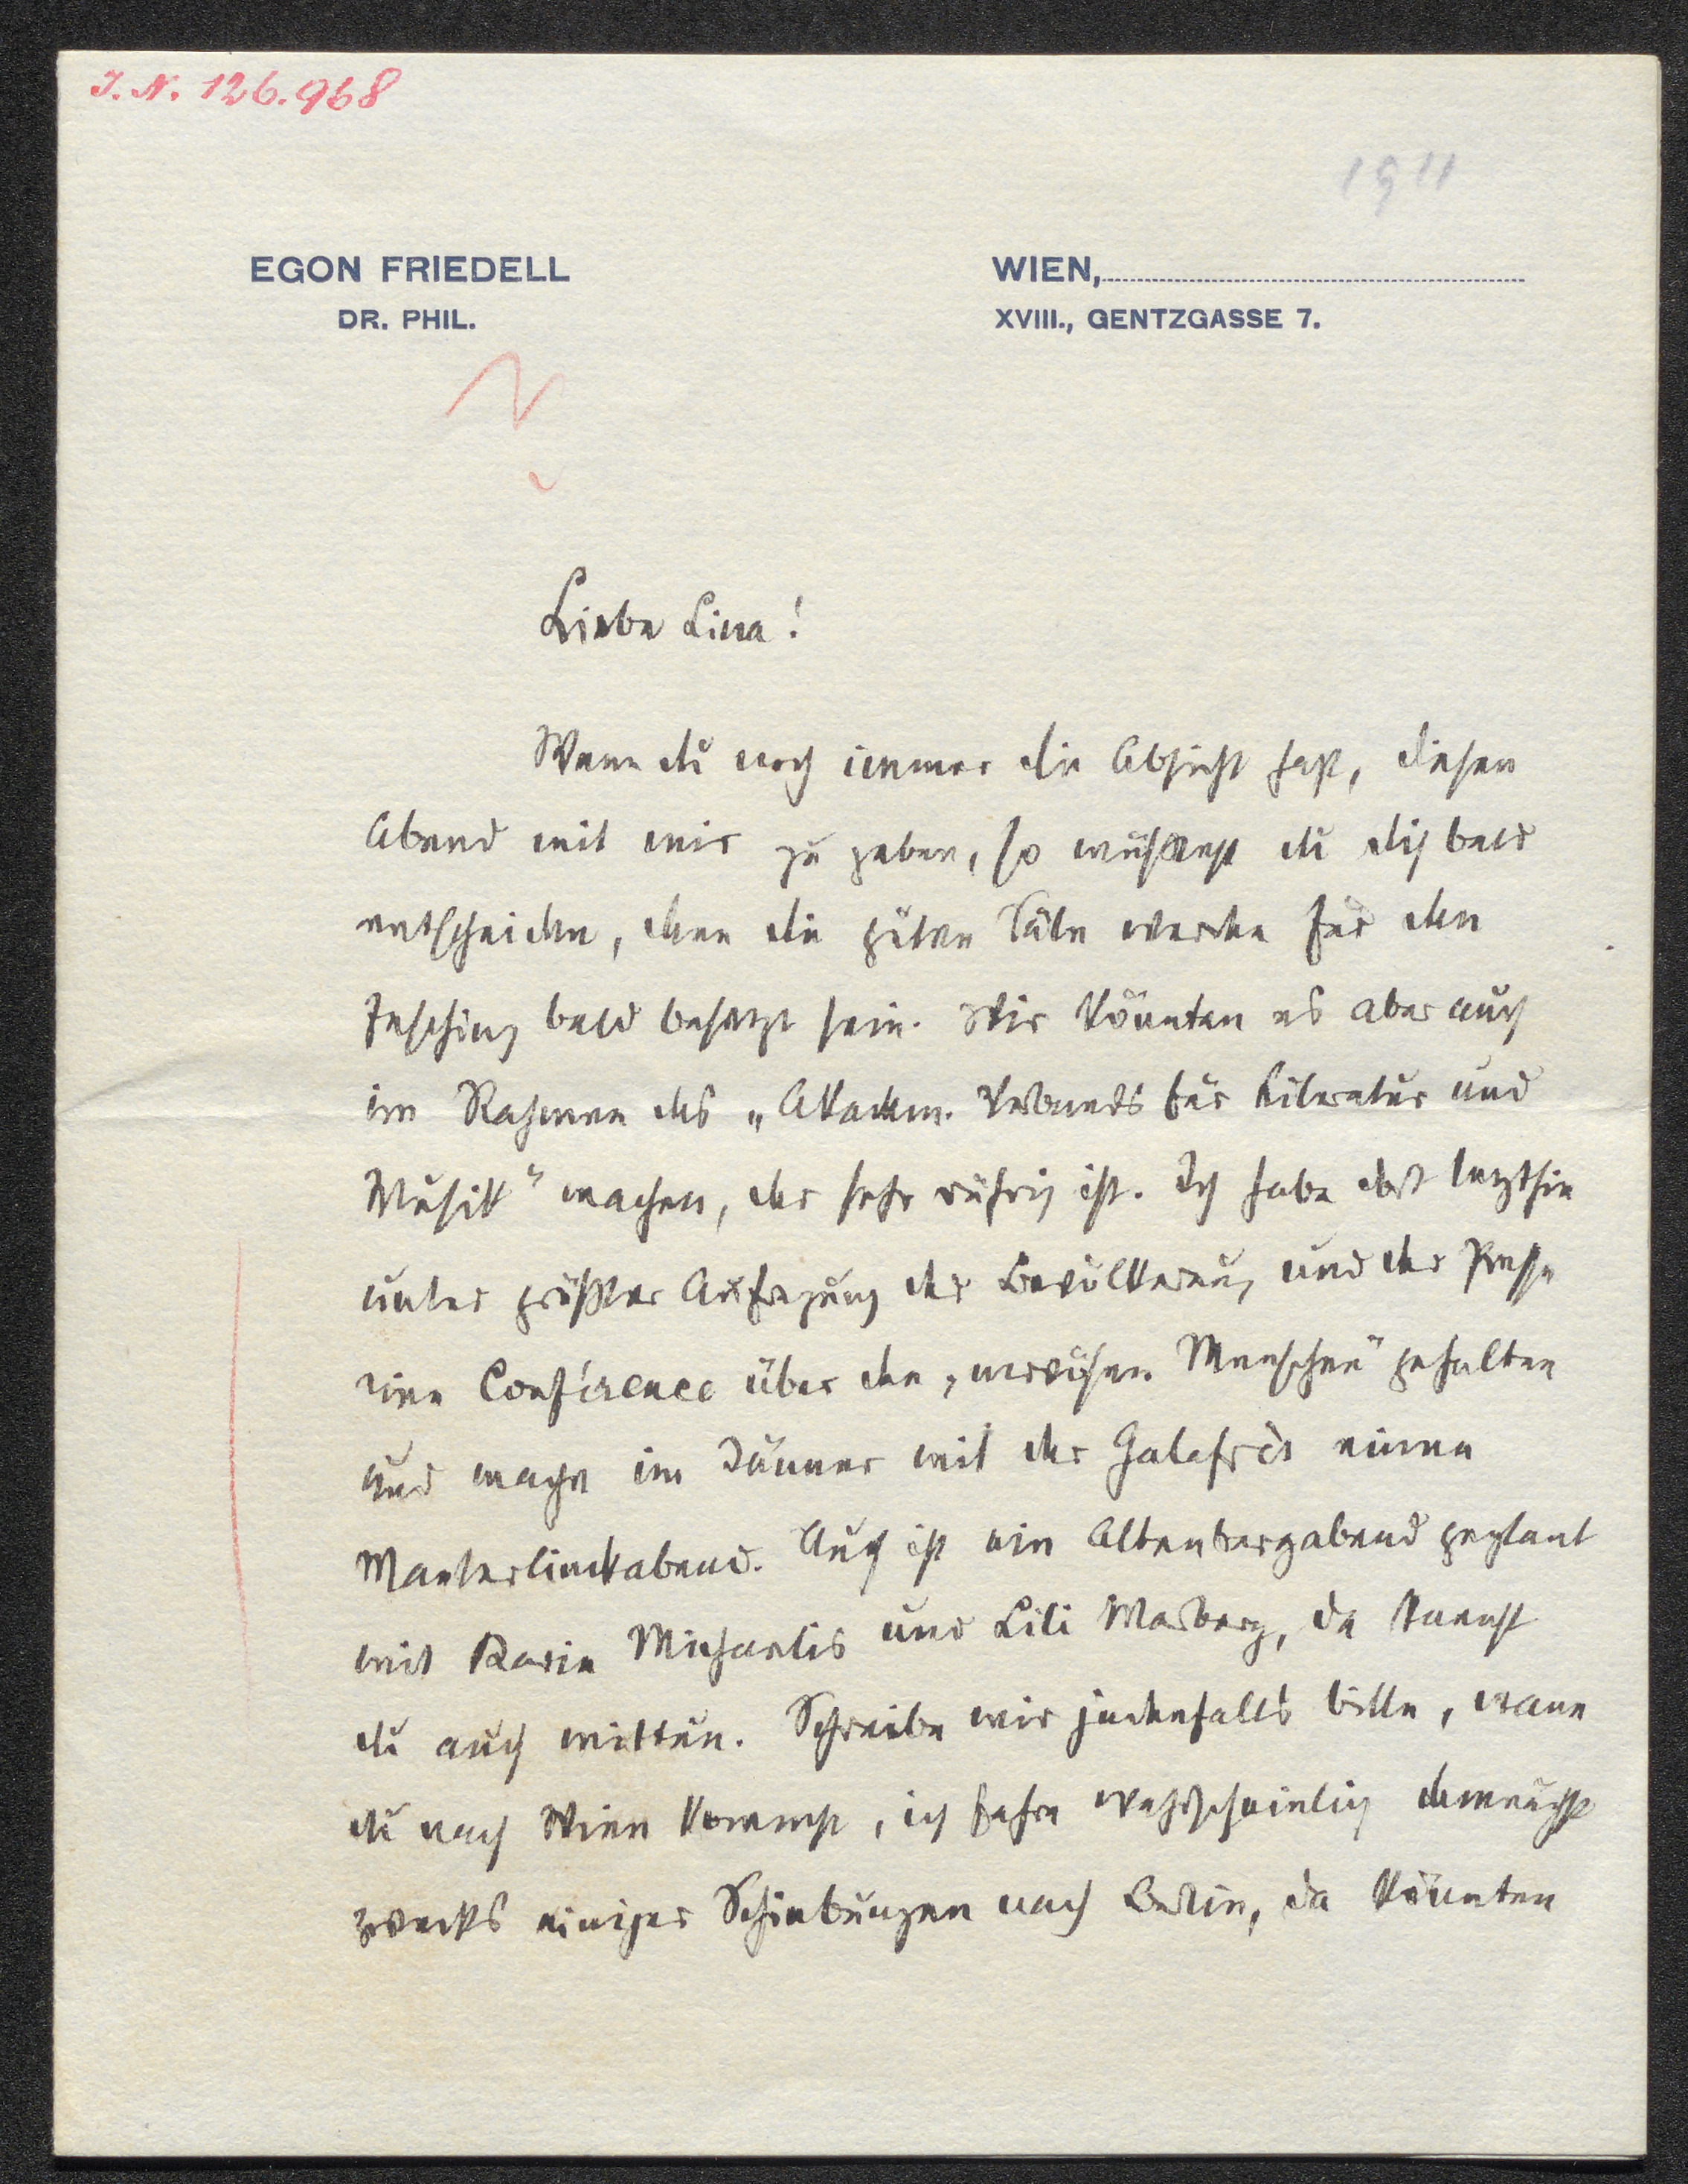 J. N. 126.968
1911
EGON FRIEDELL
DR. PHIL.
WIEN,
XVIII., GENTZGASSE 7.
Liebe Lina!
Wenn du noch immer die Absicht hast, diesen
Abend mit mir zu geben, so müsstest du dich bald
entscheiden, denn die guten Säle werden für den
Fasching bald besetzt sein. Wir könnten es aber auch
im Rahmen des „Akadem. Verbands für Literatur und
Musik" machen, der sehr rührig ist. Ich habe dort letzthin
unter größter Aufregung der Bevölkerung und der Presse
eine Conférence über den „nervösen Menschen" gehalten
und mache im Jänner mit der Galafrès einen
Maeterlinckabend. Auch ist ein Altenbergabend geplant
mit Karin Michaelis und Lili Marberg, da kannst
du auch mittun. Schreibe mir jedenfalls bitte, wann
du nach Wien kommst, ich fahre wahrscheinlich demnächst
zwecks einiger Schiebungen nach Berlin, da könnten